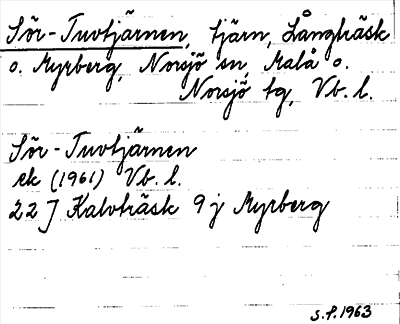 Sör-Tuvtjärnen, tjärn, Långträsk
o. Myrberg, Norsjö sn, Malå o.
Norsjö tg, Vb. l.
Sör-Tuvtjärnen
ek (1961) Vb. l.
22 J Kalvträsk 9 j Myrberg
S.P. 1963